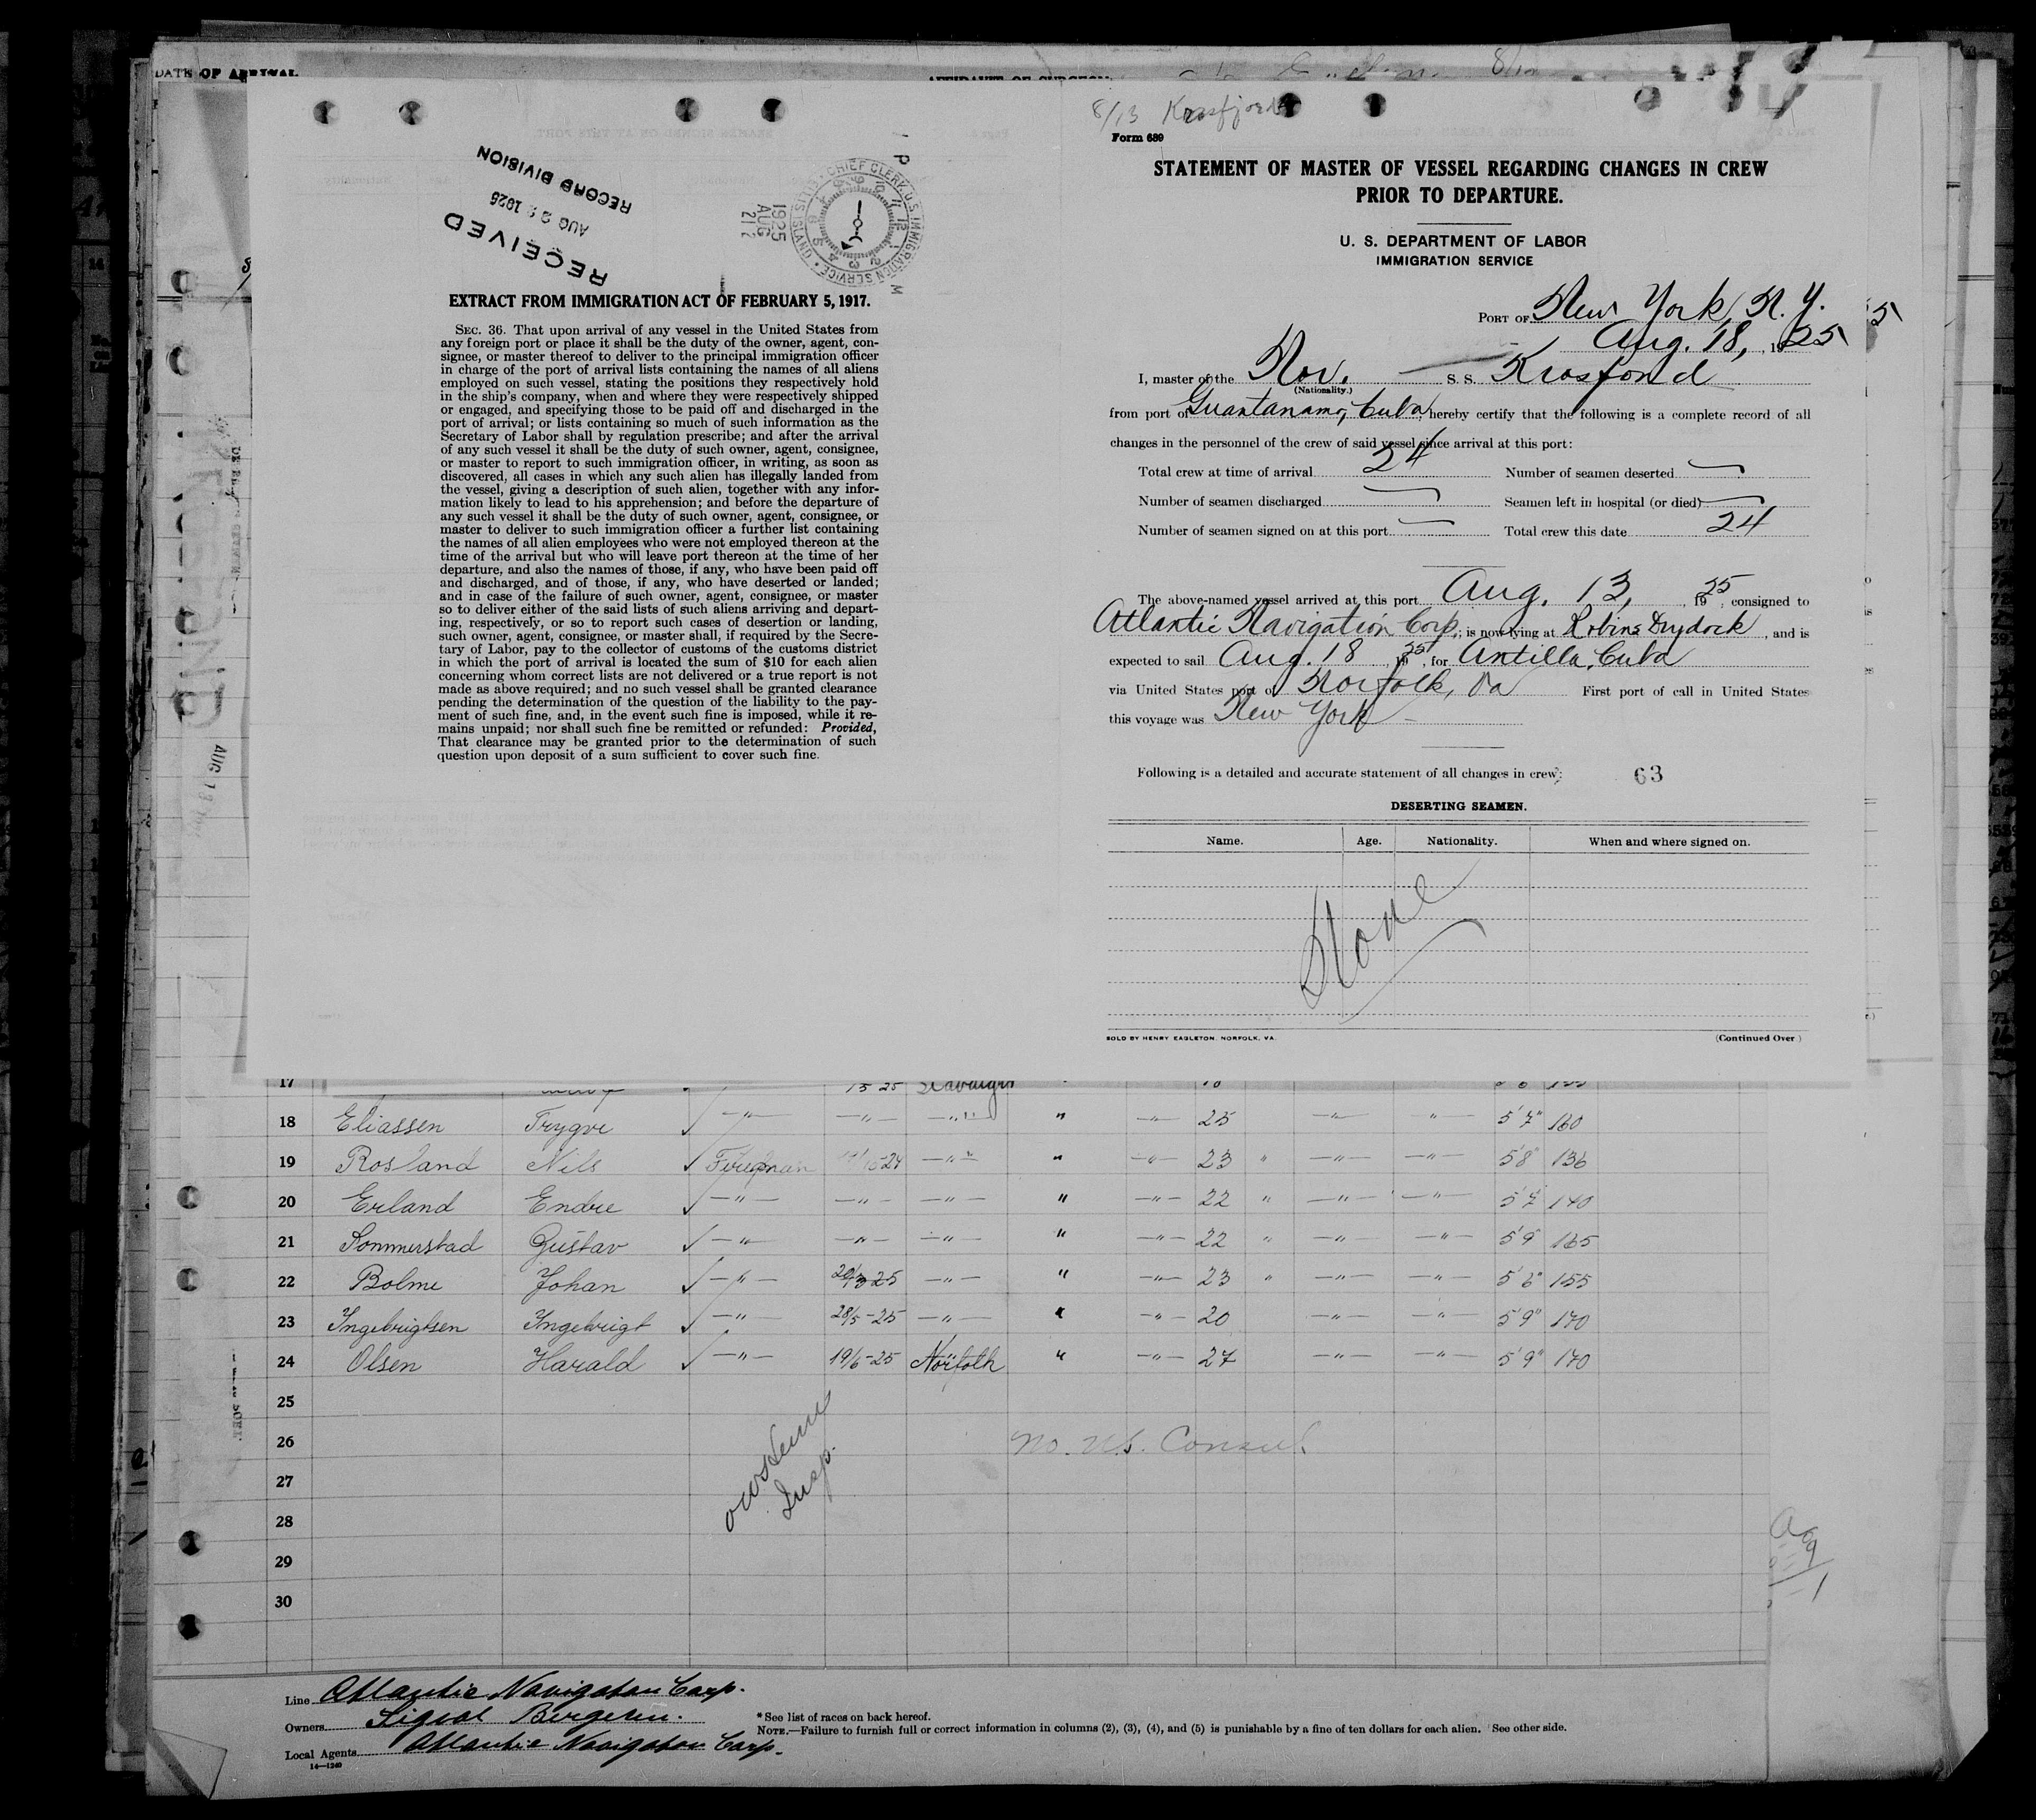 DATE OF ARRIVAL
RECEIVED
AUG 22 1925
RECORD DIVISION
CHIEF CLERK, U.S. IMMIGRATION SERVICE
1925
AUG
21
EXTRACT FROM IMMIGRATION ACT OF FEBRUARY 5, 1917.
SEC. 36. That upon arrival of any vessel in the United States from
any foreign port or place it shall be the duty of the owner, agent, con-
signee, or master thereof to deliver to the principal immigration officer
in charge of the port of arrival lists containing the names of all aliens
employed on such vessel, stating the positions they respectively hold
in the ship's company, when and where they were respectively shipped
or engaged, and specifying those to be paid off and discharged in the
port of arrival; or lists containing so much of such information as the
Secretary of Labor shall by regulation prescribe; and after the arrival
of any such vessel it shall be the duty of such owner, agent, consignee,
or master to report to such immigration officer, in writing, as soon as
discovered, all cases in which any such alien has illegally landed from
the vessel, giving a description of such alien, together with any infor-
mation likely to lead to his apprehension; and before the departure of
any such vessel it shall be the duty of such owner, agent, consignee, or
master to deliver to such immigration officer a further list containing
the names of all alien employees who were not employed thereon at the
time of the arrival but who will leave port thereon at the time of her
departure, and also the names of those, if any, who have been paid off
and discharged, and of those, if any, who have deserted or landed;
and in case of the failure of such owner, agent, consignee, or master
so to deliver either of the said lists of such aliens arriving and depart-
ing, respectively, or so to report such cases of desertion or landing,
such owner, agent, consignee, or master shall, if required by the Secre-
tary of Labor, pay to the collector of customs of the customs district
in which the port of arrival is located the sum of $10 for each alien
concerning whom correct lists are not delivered or a true report is not
made as above required; and no such vessel shall be granted clearance
pending the determination of the question of the liability to the pay-
ment of such fine, and, in the event such fine is imposed, while it re-
mains unpaid; nor shall such fine be remitted or refunded: Provided,
That clearance may be granted prior to the determination of such
question upon deposit of a sum sufficient to cover such fine.
8/13 Krosfjord
Form 689
STATEMENT OF MASTER OF VESSEL REGARDING CHANGES IN CREW
PRIOR TO DEPARTURE.
U. S. DEPARTMENT OF LABOR
IMMIGRATION SERVICE
PORT OF New York, N. Y.
Aug. 18, 1925
I, master of the Nor. S. S. Krosfond
(Nationality.)
from port of Guantanamo, Cuba, hereby certify that the following is a complete record of all
changes in the personnel of the crew of said vessel since arrival at this port:
Total crew at time of arrival 24 Number of seamen deserted —
Number of seamen discharged — Seamen left in hospital (or died) —
Number of seamen signed on at this port — Total crew this date 24
The above-named vessel arrived at this port Aug. 13, 1925, consigned to
Atlantic Navigation Corp.; is now lying at Robins Drydock, and is
expected to sail Aug. 18 1925, for Antilla, Cuba
via United States port of Norfolk, Va First port of call in United States
this voyage was New York
Following is a detailed and accurate statement of all changes in crew: 63
DESERTING SEAMEN.
Name. Age. Nationality. When and where signed on.
None
SOLD BY HENRY EAGLETON, NORFOLK, VA. (Continued Over)
17
18 Eliassen Trygve ✓ —"— —"— —"— " —"— 25 —"— —"— 5'7" 160
19 Rosland Nils ✓ Fireman —"— " —"— 23 " —"— —"— 5'8" 136
20 Erland Endre ✓ —"— —"— —"— " —"— 22 " —"— —"— 5'7" 140
21 Sommerstad Gustav ✓ —"— —"— —"— " —"— 22 " —"— —"— 5'9 165
22 Bolme Johan ✓ —"— —"— " —"— 23 " —"— —"— 5'6" 155
23 Ingebrigtsen Ingebrigt ✓ —"— 28/5-25 —"— " —"— 20 —"— —"— 5'9" 170
24 Olsen Harald ✓ —"— 19/6-25 Norfolk " —"— 27 —"— —"— 5'9" 170
25
26 No. U.S. Consul
27
28
29
30
Insp.
Line Atlantic Navigation Corp.
Owners Bergesen.
Local Agents Atlantic Navigation Corp.
14—1240
*See list of races on back hereof.
NOTE.—Failure to furnish full or correct information in columns (2), (3), (4), and (5) is punishable by a fine of ten dollars for each alien. See other side.